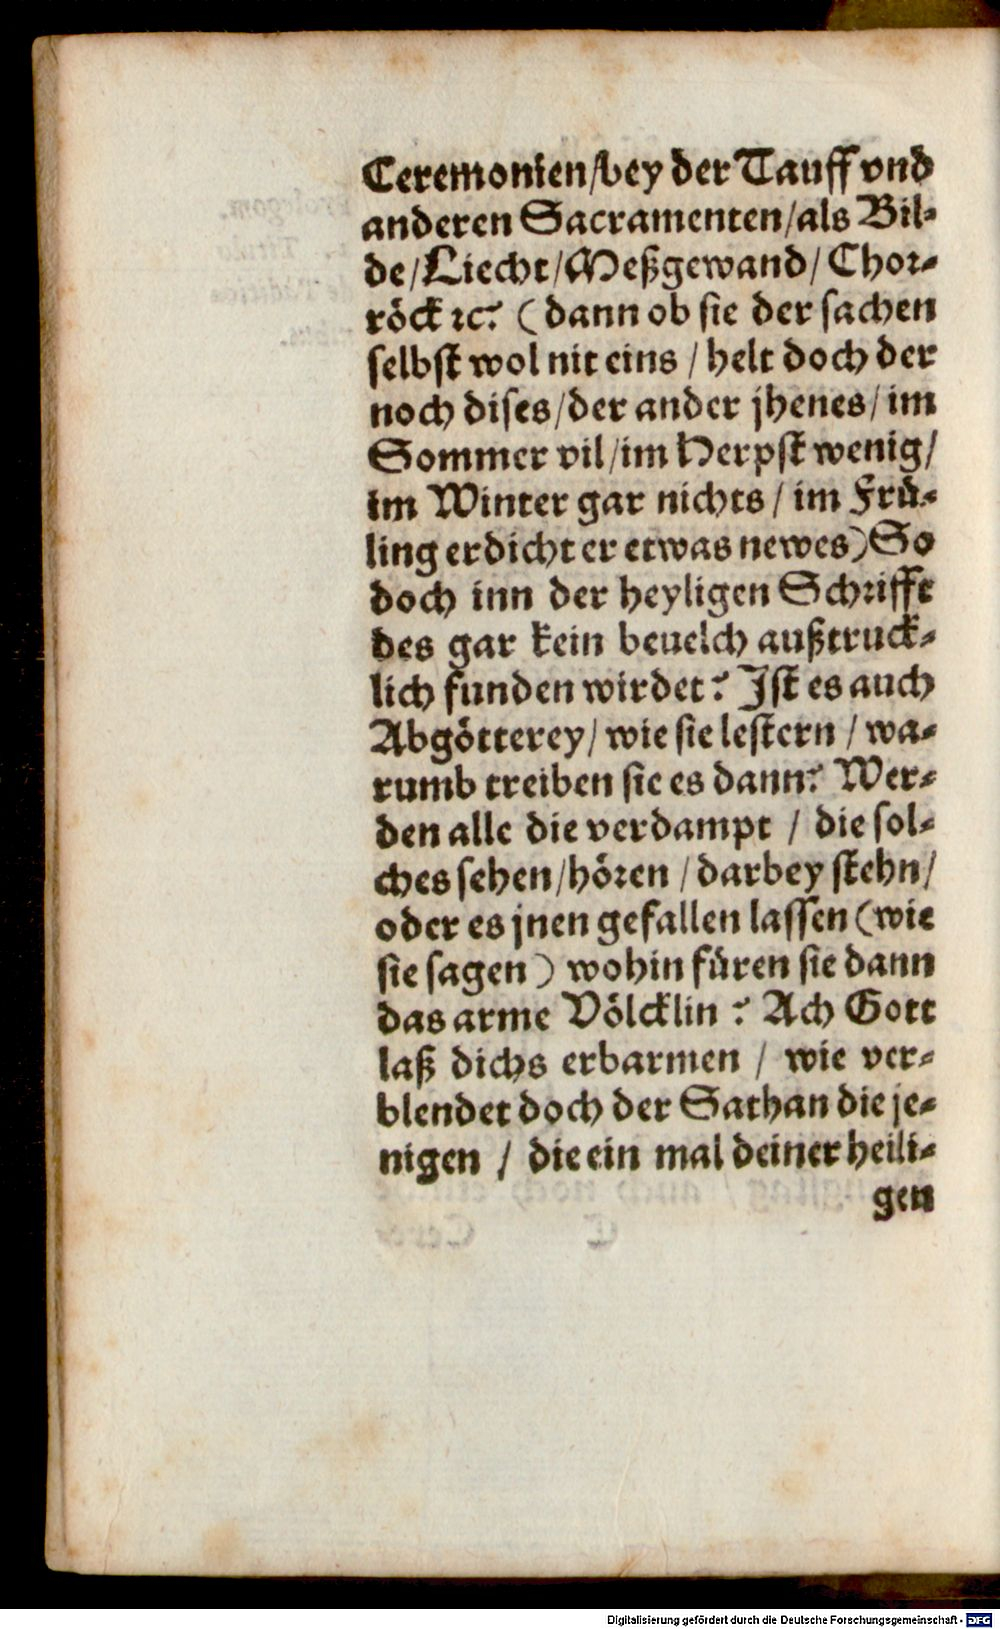 Ceremonien/bey der Tauff vnd
anderen Sacramenten/als Bil-
de/Liecht/Meßgewand/Chor-
röck ꝛc? (dann ob sie der sachen
selbst wol nit eins / helt doch der
noch dises/der ander jhenes/im
Sommer vil/im Herpst wenig/
im Winter gar nichts / im Frü-
ling erdicht er etwas newes) So
doch inn der heyligen Schrifft
des gar kein beuelch außtruck-
lich funden wirdet? Ist es auch
Abgötterey/ wie sie lestern / wa-
rumb treiben sie es dann? Wer-
den alle die verdampt / die sol-
ches sehen/hören /darbey stehn/
oder es jnen gefallen lassen (wie
sie sagen) wohin füren sie dann
das arme Völcklin ? Ach Gott
laß dichs erbarmen / wie ver-
blendet doch der Sathan die je-
nigen / die ein mal deiner heili-
gen
Digitalisierung gefördert durch die Deutsche Forschungsgemeinschaft - DFG